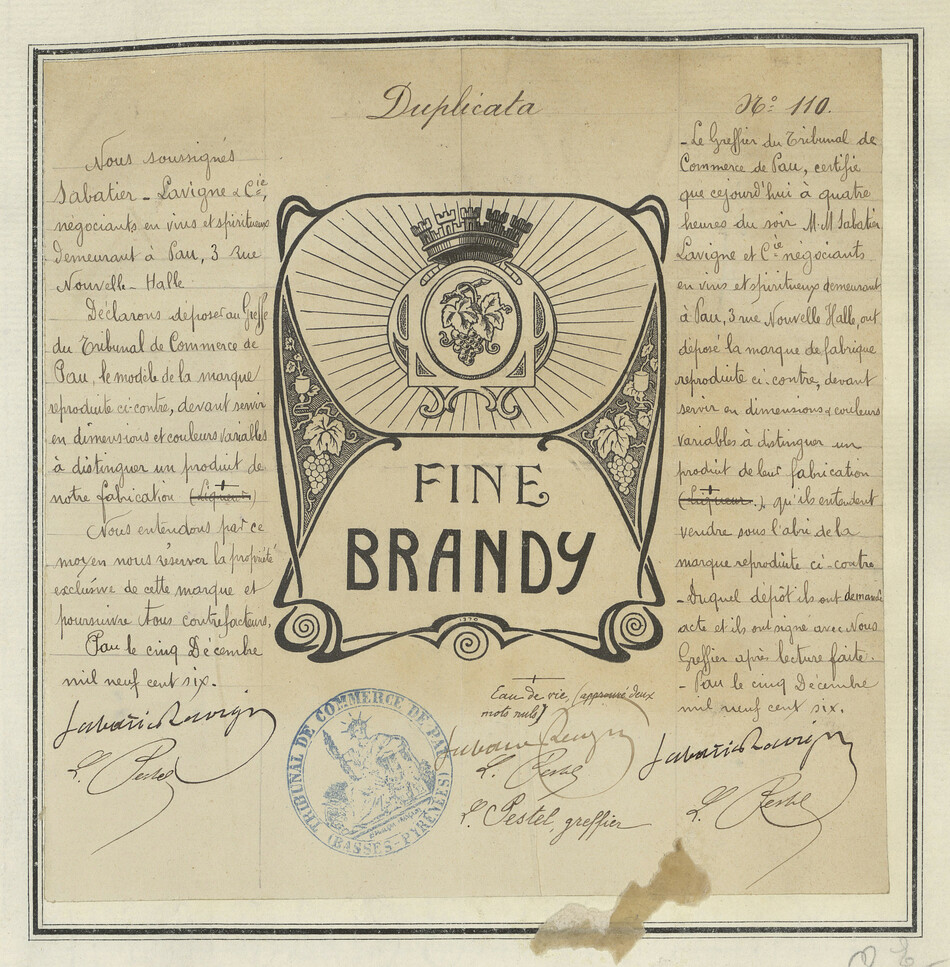 Duplicata
Nº 110.
Nous soussignés
Sabatier - Lavigne & Cie,
négociants en vins et spiritueux
demeurant à Pau, 3 Rue
Nouvelle-Halle
Déclarons déposer au Greffe
du Tribunal de Commerce de
Pau, le modèle de la marque
reproduite ci-contre, devant servir
en dimensions et couleurs variables
à distinguer un produit de
notre fabrication (Liqueur)
Nous entendons par ce
moyen nous réserver la propriété
exclusive de cette marque et
poursuivre tous contrefacteurs,
Pau le cinq Décembre
mil neuf cent six.
Sabatier Lavigne
L. Pestel
FINE
BRANDY
1370
Eau-de-vie, (approuvé deux
mots nuls)
Sabatier Lavigne
L. Pestel
L. Pestel, greffier
TRIBUNAL DE COMMERCE DE PAU
(BASSES-PYRÉNÉES)
- Le Greffier du Tribunal de
Commerce de Pau, certifie
que cejourd'hui à quatre
heures du soir M.M Sabatier
Lavigne et Cie négociants
en vins et spiritueux demeurant
à Pau, 3 rue Nouvelle Halle, ont
déposé la marque de fabrique
reproduite ci-contre, devant
servir en dimensions & couleurs
variables à distinguer un
produit de leur fabrication
(Liqueur), qu'ils entendent
vendre sous l'abri de la
marque reproduite ci-contre
- Duquel dépôt ils ont demandé
acte et ils ont signé avec Nous
Greffier après lecture faite.
- Pau le cinq Décembre
mil neuf cent six.
Sabatier Lavigne
L. Pestel